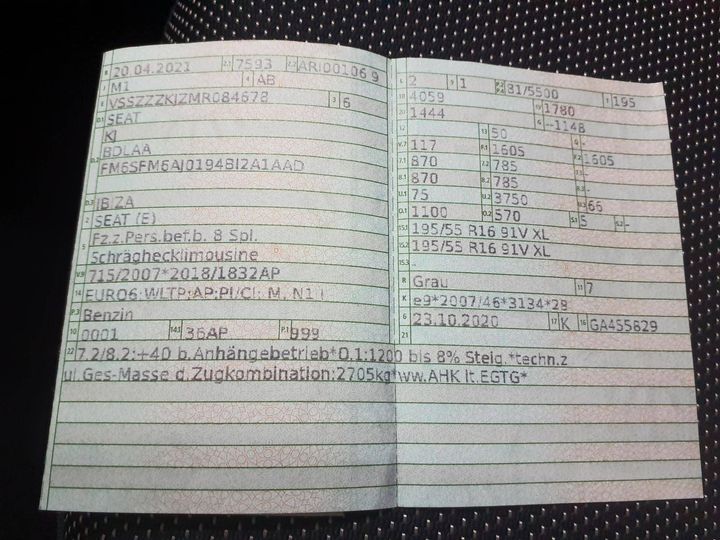 B 20.04.2021 2.1 7593 2.2 ARI00106 9
J M1 4 AB
E VSSZZZKJZMR084678 3 6
D.1 SEAT
KJ
D.2 BDLAA
FM6SFM6AJ0194BI2A1AAD
D.3 IBIZA
2 SEAT (E)
5 Fz.z.Pers.bef.b. 8 Spl.
Schräghecklimousine
V.9 715/2007*2018/1832AP
14 EURO6;WLTP;AP;PI/CI; M, N1 I
P.3 Benzin
10 0001 14.1 36AP P.1 999
L 2 9 1 P.2 P.4 81/5500 T 195
18 4059 19 1780
20 1444 G --1148
12 - 13 50 Q -
V.7 117 F.1 1605 F.2 1605
7.1 870 7.2 785 7.3 -
8.1 870 8.2 785 8.3 -
U.1 75 U.2 3750 U.3 66
O.1 1100 O.2 570 S.1 5 S.2 -
15.1 195/55 R16 91V XL
15.2 195/55 R16 91V XL
15.3 -
R Grau 11 7
K e9*2007/46*3134*28
6 23.10.2020 17 K 16 GA455829
21
22 7.2/8.2:+40 b.Anhängebetrieb*O.1:1200 bis 8% Steig.*techn.z
ul.Ges-Masse d.Zugkombination:2705kg*ww.AHK lt.EGTG*